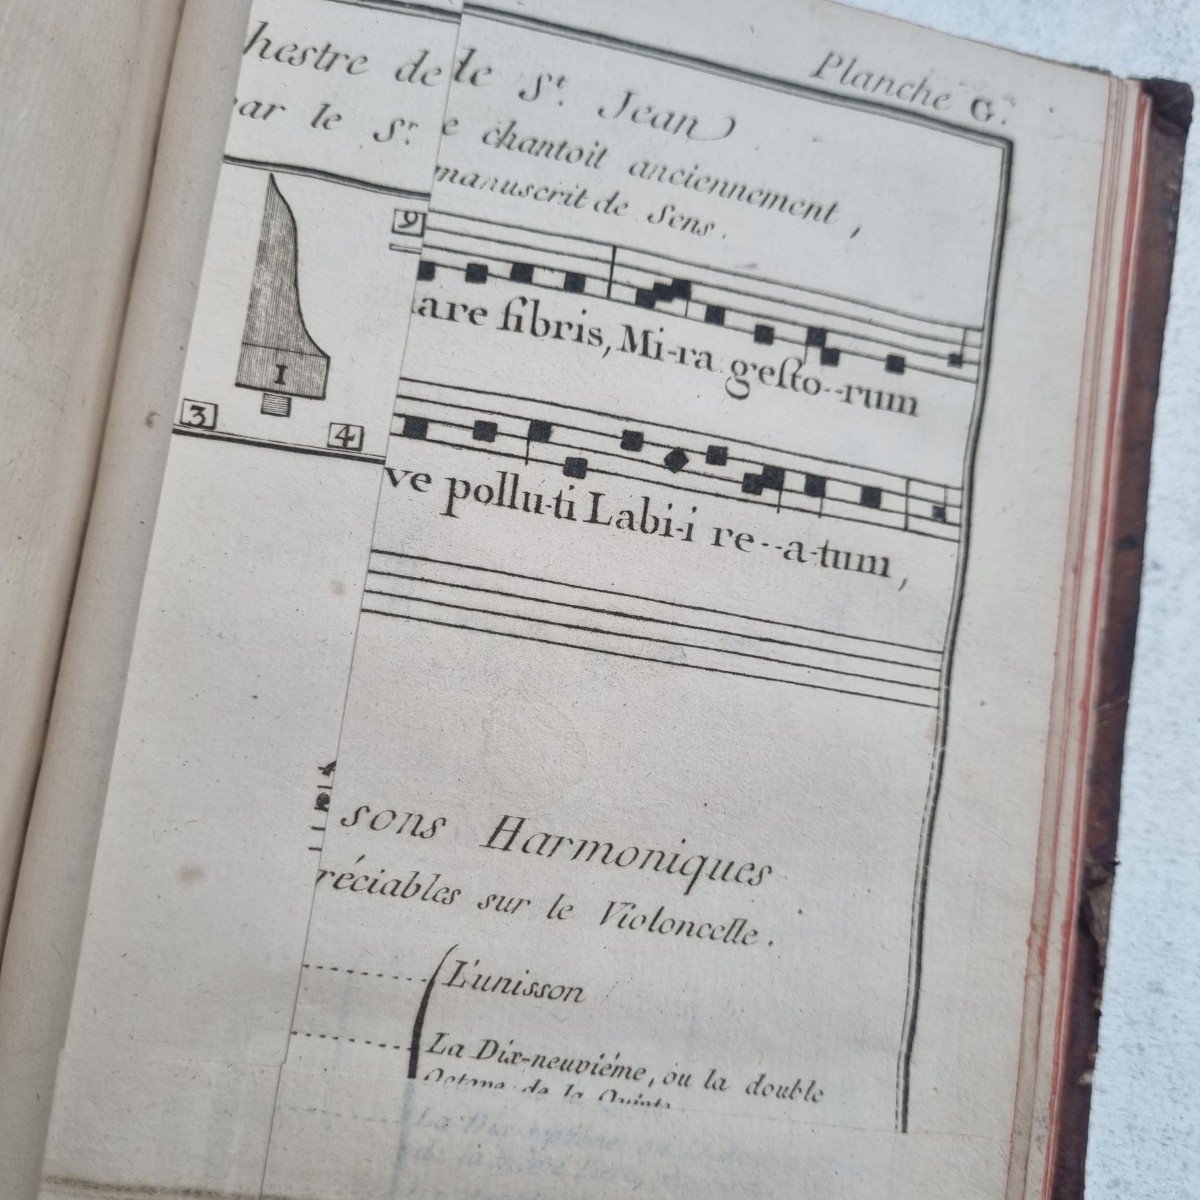 Planche G.
hestre de
ar le Sr.
9
I
3
4
de St. Jean
e chantoit anciennement,
manuscrit de Sens.
are fibris, Mi-ra gesto--rum
ve pollu-ti Labi-i re--a-tum,
sons Harmoniques
réciables sur le Violoncelle.
L'unisson
La Dix-neuviéme, ou la double
Octave de la Quinte